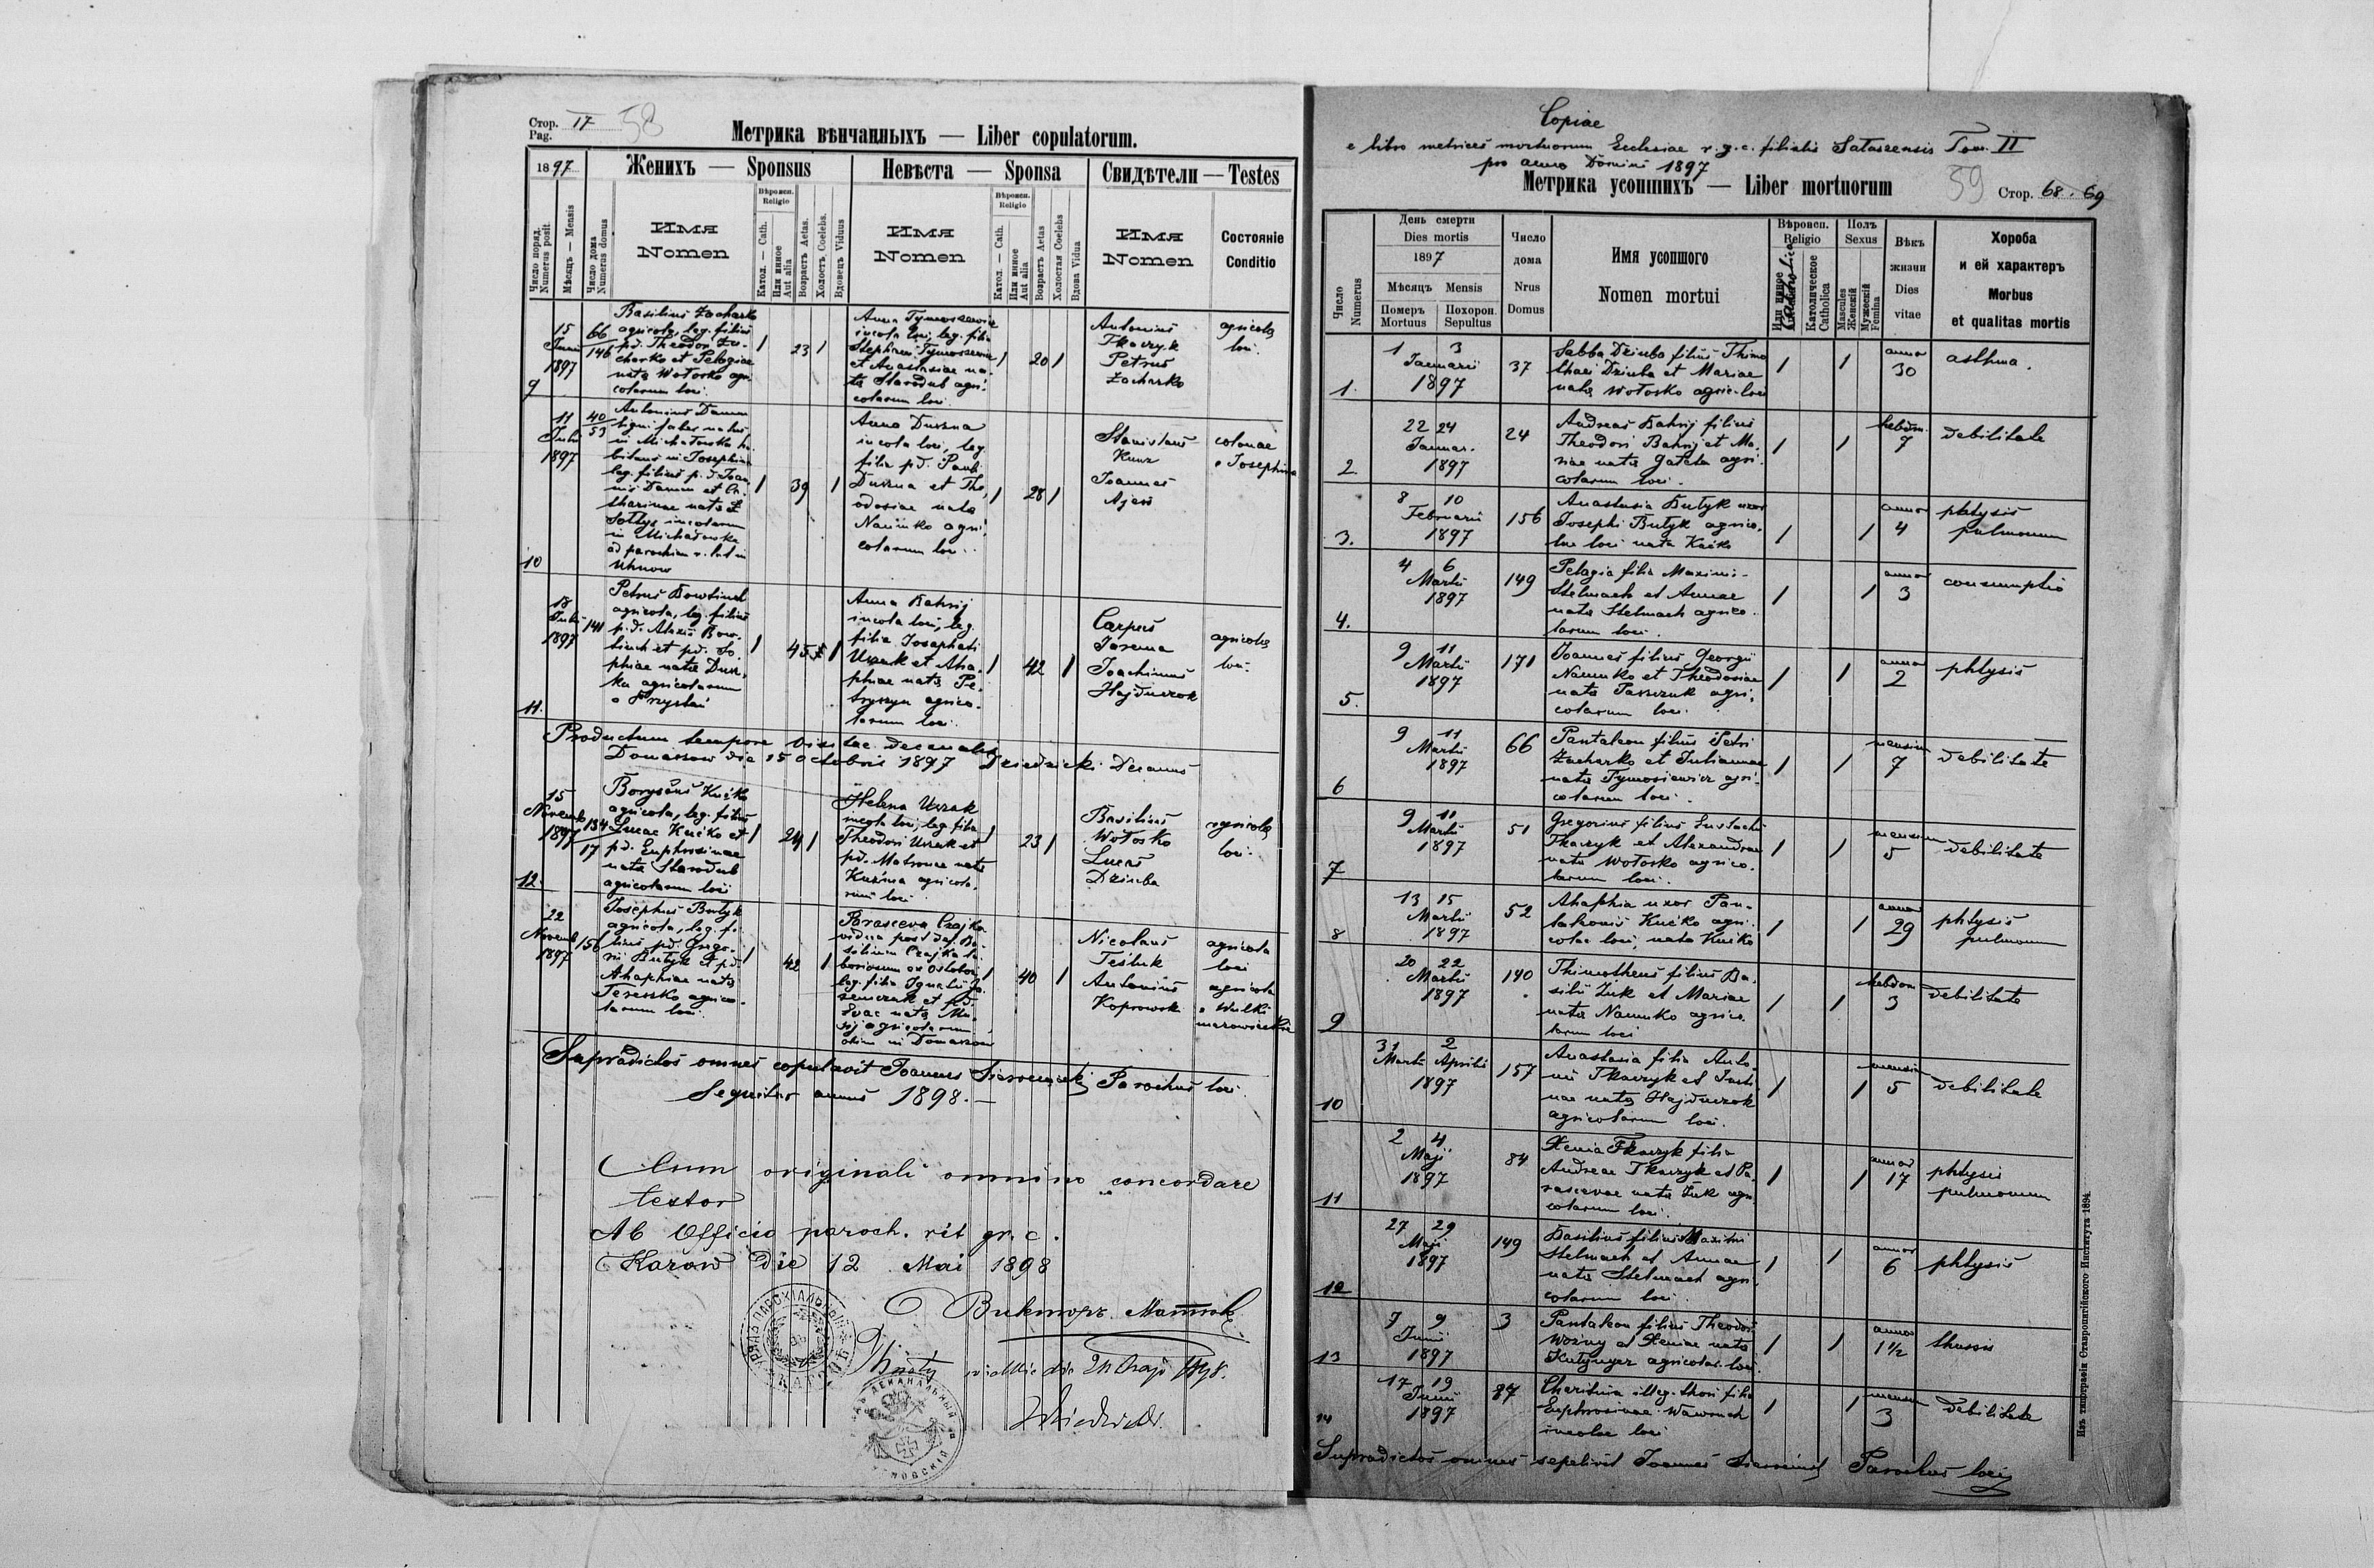 Стор. 17 58
Pag.
Метрика вѣнчанныхъ — Liber copulatorum.
1897
Женихъ — Sponsus
Невѣста — Sponsa
Свидѣтели — Testes
Число поряд.
Numerus posit
Мѣсяцъ — Mensis
Число дома
Numerus domus
Имя
Nomen
Вѣроисп.
Religio
Катол. — Cath.
Или инное
Aut alia
Возрастъ Aetas.
Холостъ, Coelebs.
Вдовецъ Viduus
Имя
Nomen
Вѣроисп.
Religio
Катол. — Cath.
Или инное
Aut alia
Возрастъ Aetas
Холостая Coelebs
Вдова Vidua
Имя
Nomen
Состояніе
Conditio
9
15
Junii
1897
66
146
Basilius Zacharko
agricola, leg. filius
pd. Theodori Za-
charko et Pelagiae
nata Wołosko agri
colarum loci.
1 23 1
Anna Tymosiewicz
incola loci, leg. filia
Stephani Tymosiewicz
et Anastasiae na-
ta Starodub agri-
colarum loci.
1 20 1
Antonius
Tkaczyk
Petrus
Zacharko
agricolae
loci.
10
11
Julii
1897
40
53
Antonius Damm
ligni faber natus
in Michałowka ha-
bitans in Josephine
leg. filius p. d. Joan-
nis Damm et Ca-
tharinae nata
Sołtys incolarum
in Michałowka
ad parochiam r. lat in
Uhnow
1 39 1
Anna Duszna
incola loci, leg.
filia pd. Pauli
Duszna et The-
odosiae nata
Naumko agri-
colarum loci.
1 28 1
Stanislaus
Kunz
Joannes
colonae
e Josephine
11.
18
Julii
1897
141
agricola, leg. filius
p. d. Alexii Bow-
phiae nata Dusz-
ka agricolarum
1 45 1
Anna Bahrij
incola loci, leg.
filia Josaphati
Uszak et Aha-
phiae nata Pe-
tryszyn agrico-
larum loci.
1 42 1
Carpus
Jarema
Joachimus
Hajduczok
agricolae
loci.
Productum tempore visitae decanalis
Domaszow die 15 Octobris 1897 Decanus
12.
15
Novemb
1897
134
17
Borysius Kućko
agricola, leg. filius
Lucae Kućko et
pd. Euphrosinae
nata Starodub
agricolarum loci
1 24 1
Helena Uszak
incola loci, leg. filia
Theodori Uszak et
pd. Matronae nata
Kuzma agricola-
rum loci.
1 23 1
Basilius
Wołosko
Lucas
Dziuba
agricolae
loci.
22
Novemb
1897
156
Josephus Butyk
agricola, leg. fi-
lius pd. Grego-
rii Butyk et pd.
Ahaphiae nata
Tereszko agrico-
larum loci.
1 42 1
Parasceva Czajka
vidua post def. Ba-
silium Czajka la-
boriosum ex Osloboda
leg. filia Ignatii
et pd.
Evae nata Mu-
sij agricolarum
olim in Domaszow
1 40 1
Nicolaus
Antonius
Koprowski
agricola
loci
agricola
e Wulki
mazowiecka
Supradictos omnes copulavit Joannes Parochus loci.
Sequitur annus 1898. —
Cum originali omnino concordare
testor
Ab Officio paroch. rit gr. c.
Karow die 12 Mai 1898
Викторъ
Copiae
e libro metrices mortuorum Ecclesiae r. g. c. filialis Tom. II
pro anno Domini 1897
Метрика усопшихъ — Liber mortuorum
59 Стор. 68. 69
Число
Numerus
День смерти
Dies mortis
1897
Мѣсяцъ Mensis
Померъ
Mortuus
Похорон.
Sepultus
Число
дома
Nrus
Domus
Имя усопшого
Nomen mortui
Вѣроисп.
Religio
Или инное
Католическое
Catholica
Полъ
Sexus
Mascules
Женскій
Мужескій
Femina
Вѣкъ
жизни
Dies
vitae
Хороба
и ей характеръ
Morbus
et qualitas mortis
1.
1 3
Januarii
1897
37
Sabba Dziuba filius Thimo
thaei Dziuba et Mariae
nata Wołosko agric. loci
1 1
annor
30
asthma.
2
22 24
Januar.
1897
24
Andreas Bahrij filius
Theodori Bahrij et Ma-
riae nata Gatela agri-
colarum loci.
1 1
hebdom.
7
debilitate
3.
8 10
Februarii
1897
156
Anastasia Butyk uxor
Josephi Butyk agrico-
lae loci nata Kućko
1 1
annor
4
phtysis
pulmonum
4.
4 6
Martii
1897
149
Pelagia filia Maximi
Stelmach et Annae
nata Stelmach agrico-
larum loci.
1 1
annor
3
consumptio
5.
9 11
Martii
1897
171
Joannes filius Georgii
Naumko et Theodosiae
nata Parszuk agri-
colarum loci.
1 1
annor
2
phtysis
6
9 11
Martii
1897
66
Pantaleon filius Petri
Zacharko et Julianae
nata Tymosiewicz agri-
colarum loci.
1 1
mensium
7
debilitate
7
9 11
Martii
1897
51
Gregorius filius Eustachii
Tkaczyk et Alexandrae
nata Wołosko agrico-
larum loci.
1 1
mensium
5
debilitate
8
13 15
Martii
1897
52
Ahaphia uxor Pan-
taleonis Kućko agri-
colae loci, nata Kućko
1 1
annor
29
phtysis
pulmonum
9
20 22
Martii
1897
140
Thimotheus filius Ba-
silii Żuk et Mariae
nata Naumko agrico-
larum loci
1 1
hebdom
3
debilitate
10
31 2
Martii Aprilis
1897
157
Anastasia filia Anto-
nii Tkaczyk et Justi-
nae nata Hajduczok
agricolarum loci.
1 1
mensium
5
debilitate
11
2 4
Maji
1897
84
Xenia Tkaczyk filia
Andreae Tkaczyk et Pa-
rascevae nata Żuk agri-
colarum loci.
1 1
annor
17
phtysis
pulmonum
12
27 29
Maji
1897
149
Basilius filius Maximi
Stelmach et Annae
nata Stelmach agri-
colarum loci.
1 1
annor
6
phtysis
13
7 9
Junii
1897
3
Pantaleon filius Theodori
Woźny et Xeniae nata
agricolar. loci.
1 1
annor
1 1/2
thussis
14
17 19
Junii
1897
87
Charitina illeg. thori filia
Euphrosinae Wawruch
incolae loci
1 1
mensium
3
debilitate
Supradictos omnes sepelivit Joannes Parochus loci
Изъ типографіи Ставропигійского Института 1894.